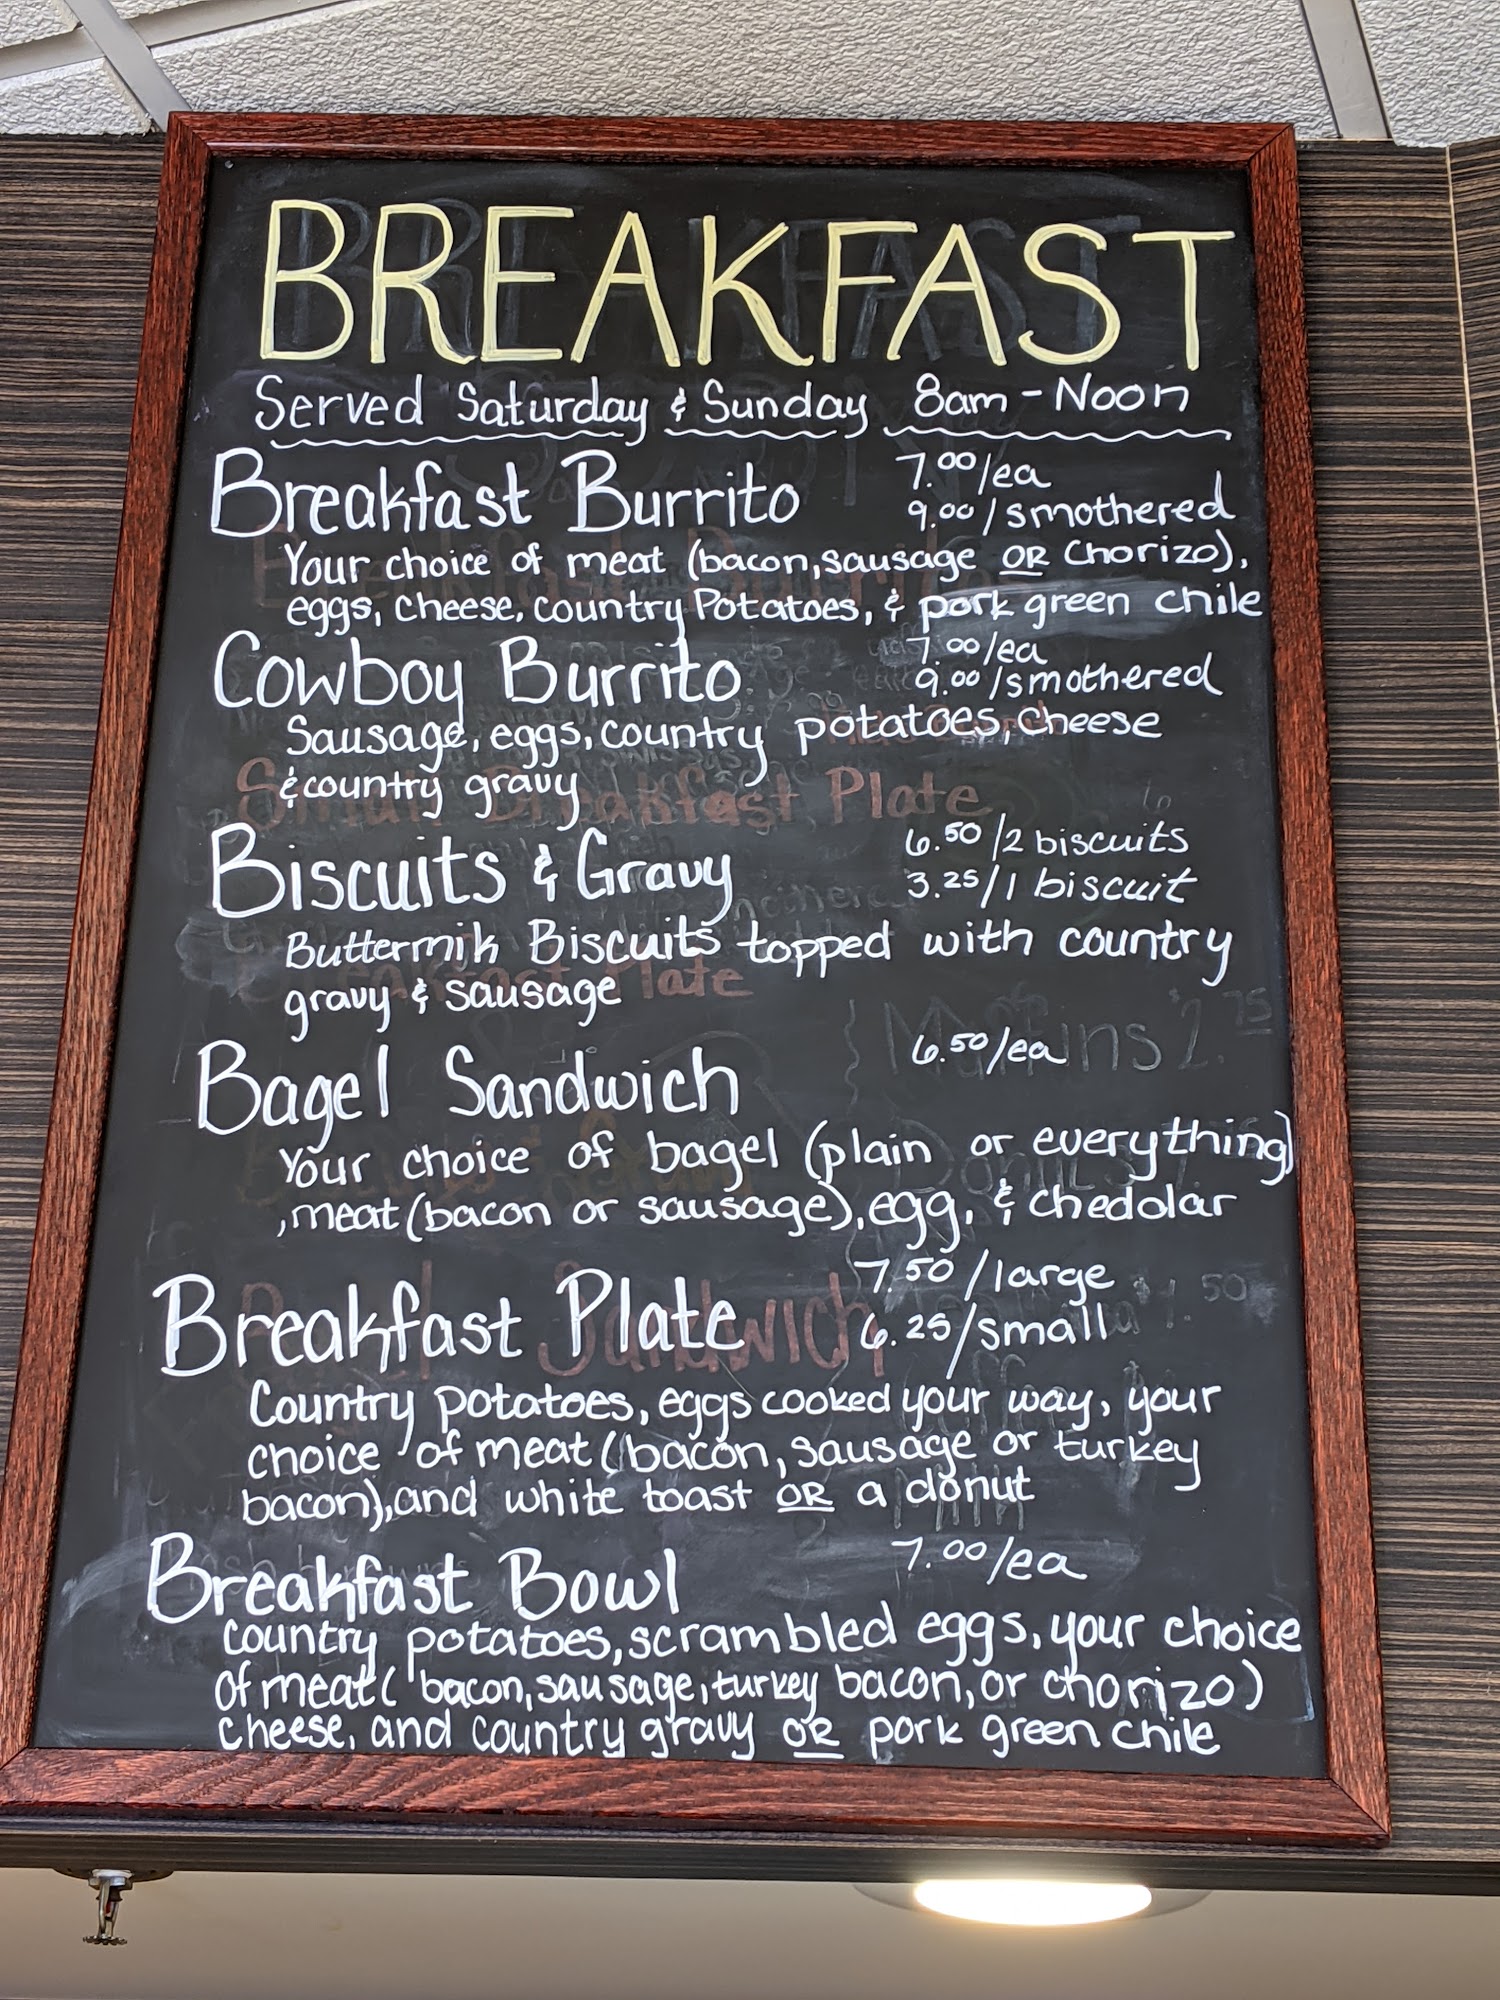 BREAKFAST
Served Saturday & Sunday 8am - Noon
Breakfast Burrito 7.00/ea
9.00/smothered
Your choice of meat (bacon, sausage OR Chorizo),
eggs, Cheese, Country Potatoes, & pork green chile
Cowboy Burrito 7.00/ea
9.00/smothered
Sausage, eggs, country potatoes, cheese
& country gravy
Biscuits & Gravy 6.50/2 biscuits
3.25/1 biscuit
Buttermik Biscuits topped with country
gravy & sausage
Bagel Sandwich 6.50/ea
Your choice of bagel (plain or everything)
, meat (bacon or sausage), egg, & cheddar
Breakfast Plate 7.50/large
6.25/small
Country potatoes, eggs cooked your way, your
choice of meat (bacon, sausage or turkey
bacon), and white toast OR a donut
Breakfast Bowl 7.00/ea
Country potatoes, scrambled eggs, your choice
of meat ( bacon, sausage, turkey bacon, or chorizo)
cheese, and country gravy OR pork green chile